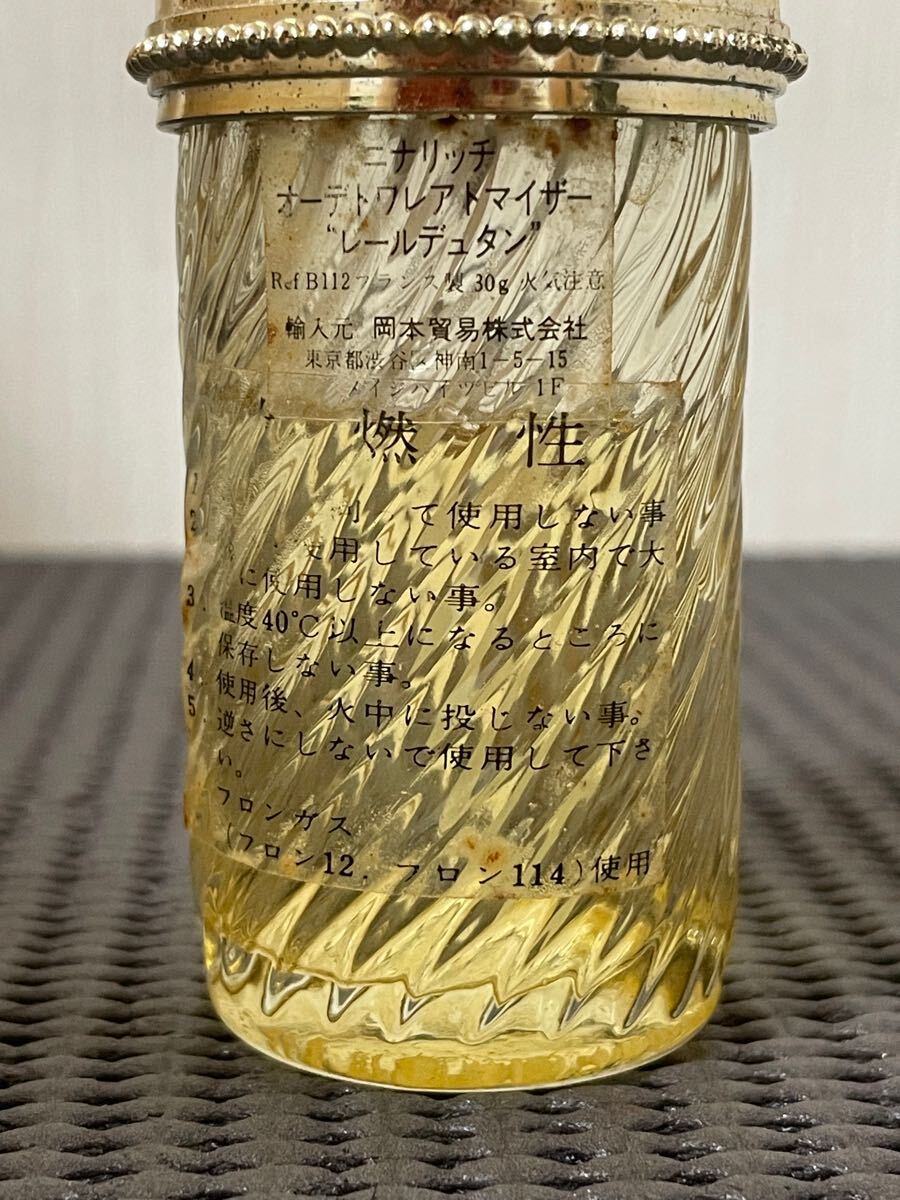 ニナリッチ
オーデトワレアトマイザー
“レールデュタン”
Ref B112 フランス製 30g 火気注意
輸入元 岡本貿易株式会社
東京都渋谷区神南1-5-15
メイジハイツビル 1F
燃性
1
2 て使用しない事
使用している室内で大
に使用しない事。
3. 温度40℃以上になるところに
保存しない事。
4. 使用後、火中に投じない事。
5. 逆さにしないで使用して下さ
い。
フロンガス
(フロン12. フロン114)使用